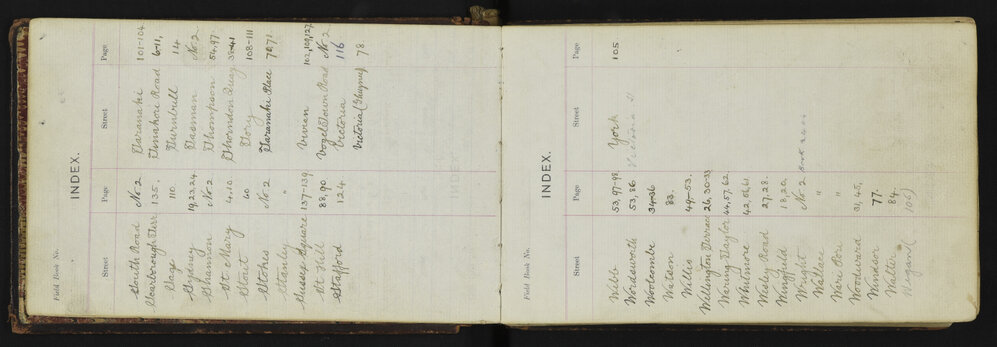 INDEX.
Field Book No.
Street Page Street Page
South Road No 2 Taranaki 101-104
Scarborough Terr 135. Tinakori Road 6-11,
Sage 110 Turnbull 14
Sydney 19,23,24 Tasman No 2
Shannon No 2 Thompson 54,97
St Mary 4,10 Thorndon Quay 38-41
Stout 60 Tory 108-111
Stokes No 2 Taranaki Place 70,71
Stanley "
Sussex Square 137-139 Vivian 102,109,127
St Hill 88,90 Vogeltown Road No 2
Stafford 124 Victoria 116
Victoria (Thayne) 78
INDEX.
Field Book No.
Street Page Street Page
Webb 53,97-98 York 105
Wordsworth 53,86 Victoria St
Woolcombe 34-36
Watson 83.
Willis 49-53.
Wellington Terrace 26,30-33
Waring Taylor 44,57,62
Whitmore 42,58,61
Wesley Road 27,28.
Wingfield 18,20
Wright No 2
Wallace "
Ware Poi "
Woodward 31,45,
Windsor 77.
Walter 84
Wegand 106)